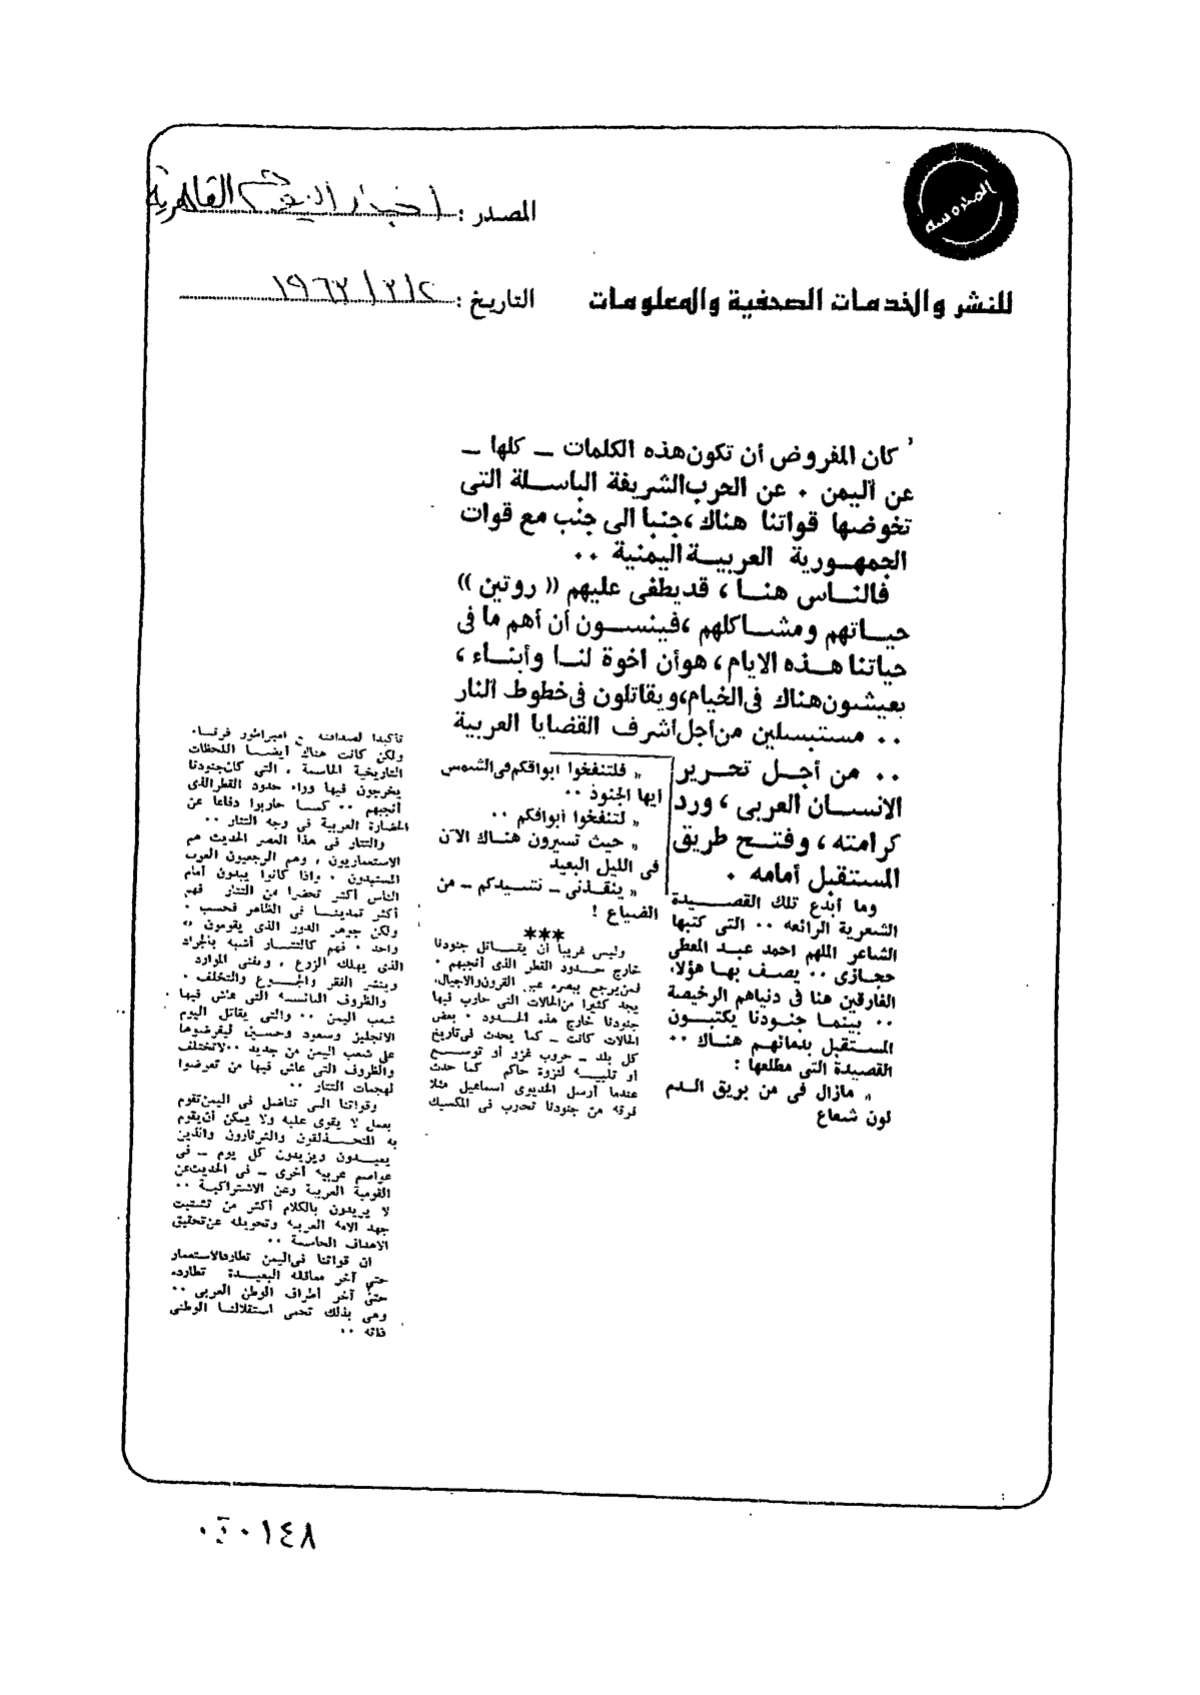 المصدر : اخبار اليوم القاهرية
التاريخ : ١٩٦٣/٣/٢
للنشر والخدمات الصحفية والمعلومات
كان المفروض أن تكون هذه الكلمات ـ كلها ـ
عن اليمن ٠ عن الحرب الشريفة الباسلة التى
تخوضها قواتنا هناك ، جنبا الى جنب مع قوات
الجمهورية العربية اليمنية ٠٠
فالناس هنا ، قد يطغى عليهم (( روتين ))
حياتهم ومشاكلهم ، فينسون أن أهم ما فى
حياتنا هذه الايام ، هو أن اخوة لنا وأبناء ،
يعيشون هناك فى الخيام، ويقاتلون فى خطوط النار
٠٠ مستبسلين من أجل أشرف القضايا العربية
٠٠ من أجل تحرير
الانسان العربى ، ورد
كرامته ، وفتح طريق
المستقبل أمامه ٠
وما أبدع تلك القصيدة
الشعرية الرائعه ٠٠ التى كتبها
الشاعر الملهم احمد عبد المعطى
حجازى ٠٠ يصف بها هؤلاء
الغارقين هنا فى دنياهم الرخيصة
٠٠ بينما جنودنا يكتبون
المستقبل بدمائهم هناك ٠٠
القصيدة التى مطلعها :
« مازال فى من بريق الدم
لون شعاع
« فلتنفخوا ابواقكم فى الشمس
ايها الجنود ٠٠
« لتنفخوا أبواقكم ٠٠
« حيث تسيرون هناك الآن
فى الليل البعيد
« ينقذنى ـ نشيدكم ـ من
الضياع !
***
وليس غريبا أن يقاتل جنودنا
خارج حدود القطر الذى أنجبهم ٠
فمن يرجع ببصره عبر القرون والاجيال،
يجد كثيرا من الحالات التى حارب فيها
جنودنا خارج هذه الحدود ٠ بعض
الحالات كانت ـ كما يحدث فى تاريخ
كل بلد ـ حروب غزو أو توسع
او تلبيه لنزوة حاكم كما حدث
عندما أرسل الخديوى اسماعيل مثلا
فرقه من جنودنا تحارب فى المكسيك
تأكيدا لصداقته ـ امبراطور فرنسا٠
ولكن كانت هناك أيضا اللحظات
التاريخية الحاسمة ، التى كان جنودنا
يخرجون فيها وراء حدود القطر الذى
أنجبهم ٠٠ كما حاربوا دفاعا عن
الحضارة العربية فى وجه التتار ٠٠
والتتار فى هذا العصر الحديث هم
الاستعماريون ، وهم الرجعيون العرب
المستبدون ٠ واذا كانوا يبدون أمام
الناس أكثر تحضرا من التتار فهم
أكثر تمدينا فى الظاهر فحسب ٠
ولكن جوهر الدور الذى يقومون به
واحد ٠ فهم كالتتار أشبه بالجراد
الذى يهلك الزرع ، ويفنى الموارد
وينشر الفقر والجوع والتخلف ٠
والظروف البائسة التى عاش فيها
شعب اليمن ٠٠ والتى يقاتل اليوم
الانجليز وسعود وحسين ليفرضوها
على شعب اليمن من جديد ٠٠ لا تختلف
والظروف التى عاش فيها من تعرضوا
لهجمات التتار ٠٠
وقواتنا التى تناضل فى اليمن تقوم
بعمل لا يقوى عليه ولا يمكن أن يقوم
به المتحذلقون والثرثارون والذين
يعيدون ويزيدون كل يوم ـ فى
عواصم عربيه أخرى ـ فى الحديث عن
القومية العربية وعن الاشتراكية ٠٠
لا يريدون بالكلام أكثر من تشتيت
جهد الامه العربيه وتحويله عن تحقيق
الاهداف الحاسمة ٠٠
ان قواتنا فى اليمن تطارد الاستعمار
حتى آخر معاقله البعيدة تطارده
حتى آخر أطراف الوطن العربى ٠٠
وهى بذلك تحمى استقلالنا الوطنى
ذاته ٠٠